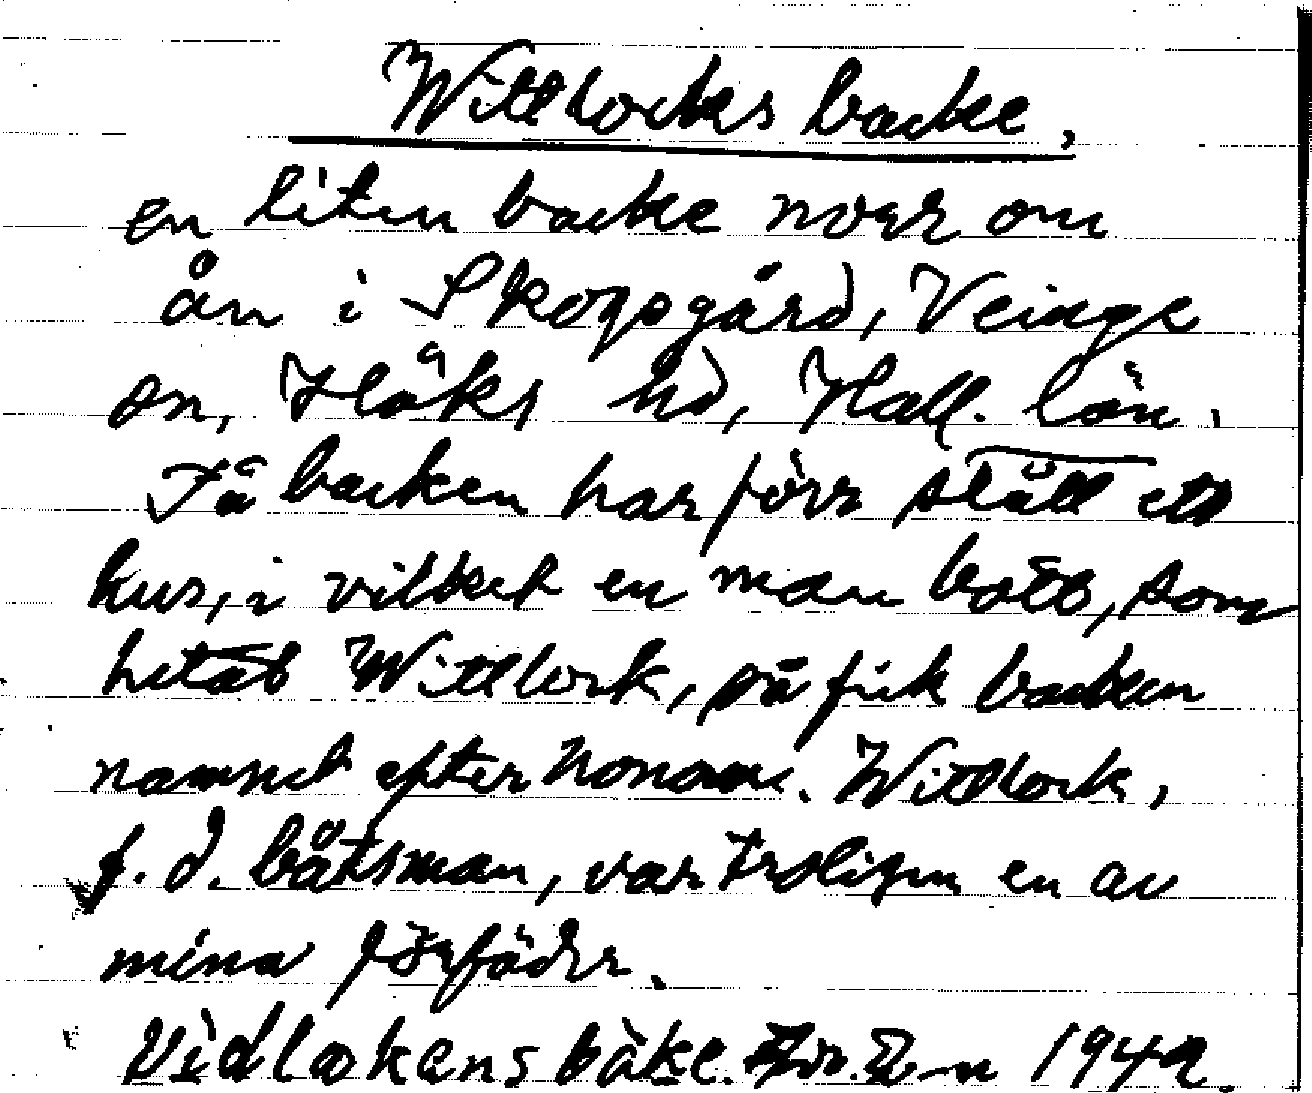 Wittlocks backe,
en liten backe norr om
ån i Skogsgård, Veinge
sn, Höks hd, Hall. län.
På backen har förr stått ett
hus, i vilket en man bott, som
hetat Wittlock, så fick backen
namnet efter honom. Wittlock,
f. d. båtsman, var troligen en av
mina förfäder.
Vidlakens bàke. 1942.